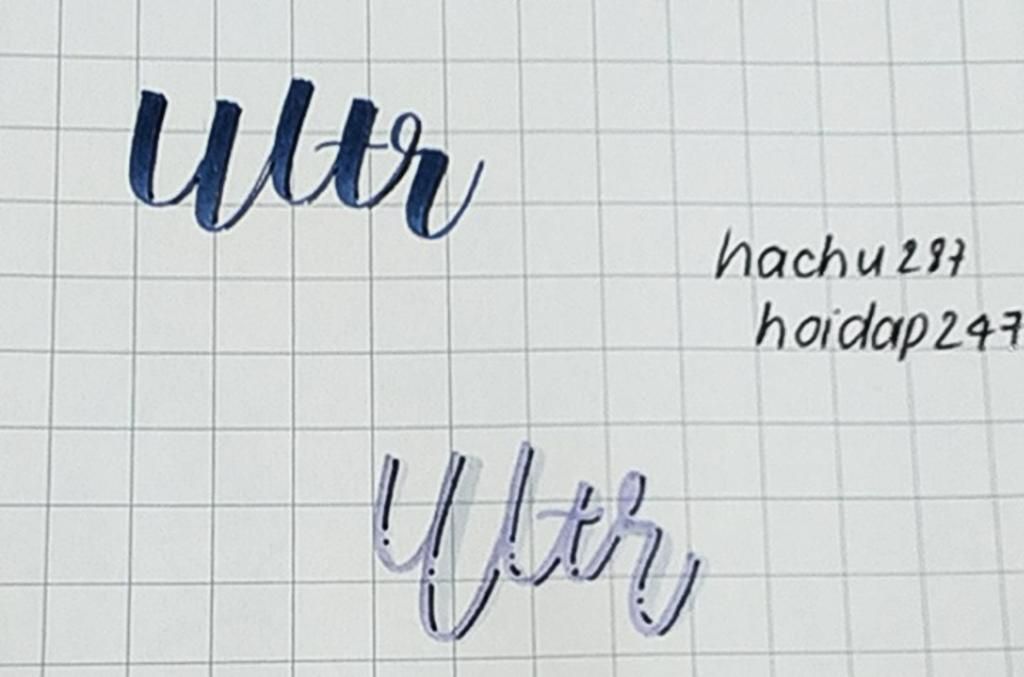 Ultr
hachu287
hoidap247
Ultr